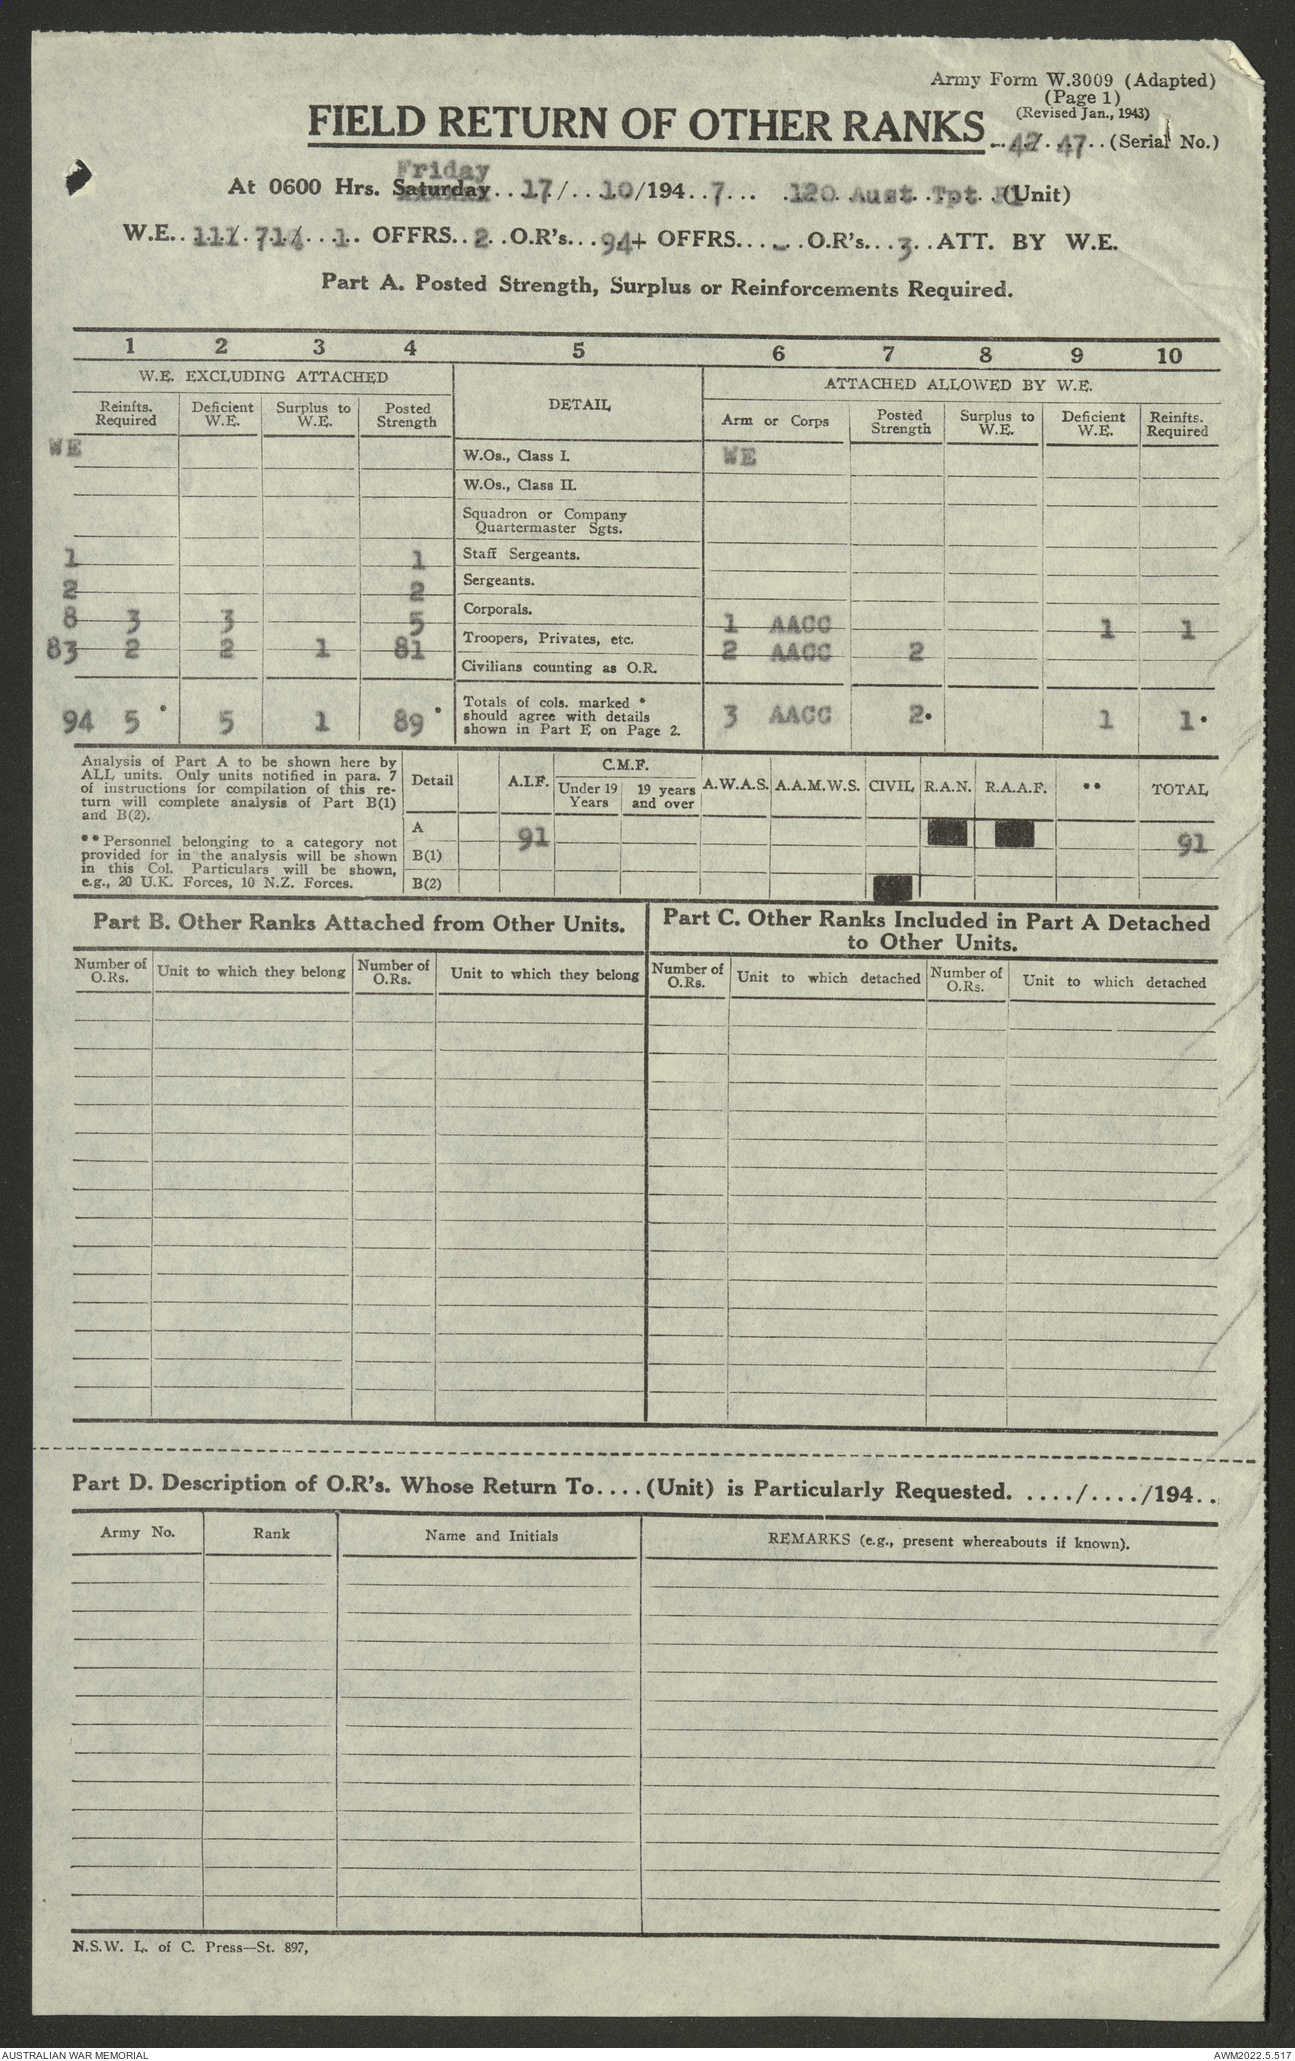 Army Form W.3009 (Adapted)
(Page 1)
(Revised Jan., 1943)
FIELD RETURN OF OTHER RANKS
47. (Serial No.)
Friday
At 0600 Hrs. Saturday..17/..10/194..7... .120 Aust. Tpt. (Unit)
W.E..111/.714/...1. OFFRS..2..O.R's...94+ OFFRS....-..O.R's...3..ATT. BY W.E.
Part A. Posted Strength, Surplus or Reinforcements Required.
1 2 3 4 5 6 7 8 9 10
W.E. EXCLUDING ATTACHED
DETAIL
ATTACHED ALLOWED BY W.E.
Reinfts. Required
Deficient W.E.
Surplus to W.E.
Posted Strength
Arm or Corps
Posted Strength
Surplus to W.E.
Deficient W.E.
Reinfts. Required
WE W.Os., Class I. WE
W.Os., Class II.
Squadron or Company
Quartermaster Sgts.
1 1 Staff Sergeants.
2 2 Sergeants.
8 3 3 5 Corporals. 1 AACC 1 1
83 2 2 1 81 Troopers, Privates, etc. 2 AACC 2
Civilians counting as O.R.
Totals of cols. marked *
should agree with details
shown in Part E on Page 2.
94 5 * 5 1 89 * 3 AACC 2. 1 1.
Analysis of Part A to be shown here by
ALL units. Only units notified in para. 7
of instructions for compilation of this re-
turn will complete analysis of Part B(1)
and B(2).
** Personnel belonging to a category not
provided for in the analysis will be shown
in this Col. Particulars will be shown,
e.g., 20 U.K. Forces, 10 N.Z. Forces.
Detail
A.I.F.
C.M.F.
Under 19 Years
19 years and over
A.W.A.S.
A.A.M.W.S.
CIVIL
R.A.N.
R.A.A.F.
**
TOTAL
A 91 91
B(1)
B(2)
Part B. Other Ranks Attached from Other Units.
Part C. Other Ranks Included in Part A Detached
to Other Units.
Number of O.Rs.
Unit to which they belong
Number of O.Rs.
Unit to which they belong
Number of O.Rs.
Unit to which detached
Number of O.Rs.
Unit to which detached
Part D. Description of O.R's. Whose Return To....(Unit) is Particularly Requested. ..../..../194..
Army No.
Rank
Name and Initials
REMARKS (e.g., present whereabouts if known).
N.S.W. L. of C. Press—St. 897,
AUSTRALIAN WAR MEMORIAL
AWM2022.5.517